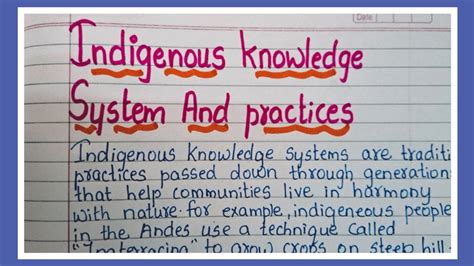 Date
Indigenous knowledge
System And practices
Indigenous knowledge systems are traditi
practices passed down through generation
that help communities live in harmony
with nature. for example, indigeneous people
in the Andes use a technique called
to grow crops on steep hill